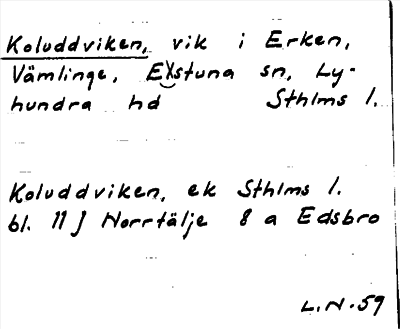 Koluddviken, vik i Erken,
Vämlinge, Estuna sn, Ly-
hundra hd Sthlms l.
Koluddviken, ek Sthlms l.
bl. 11 J Norrtälje 8 a Edsbro
L.N.59